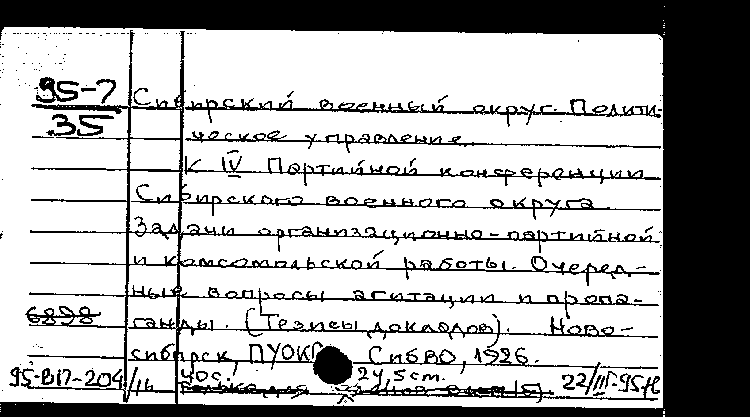 95-7
35
Сибирский военный округ. Полити-
ческое управление.
К IV Партийной конференции
Сибирского военного округа.
Задачи организационно-партийной
и комсомольской работы. Очеред-
ные вопросы агитации и пропа-
6898
ганды. (Тезисы докладов). Ново-
сибирск, СибВО, 1926.
40с. 24,5см.
95-В17-204/16
22/III-95